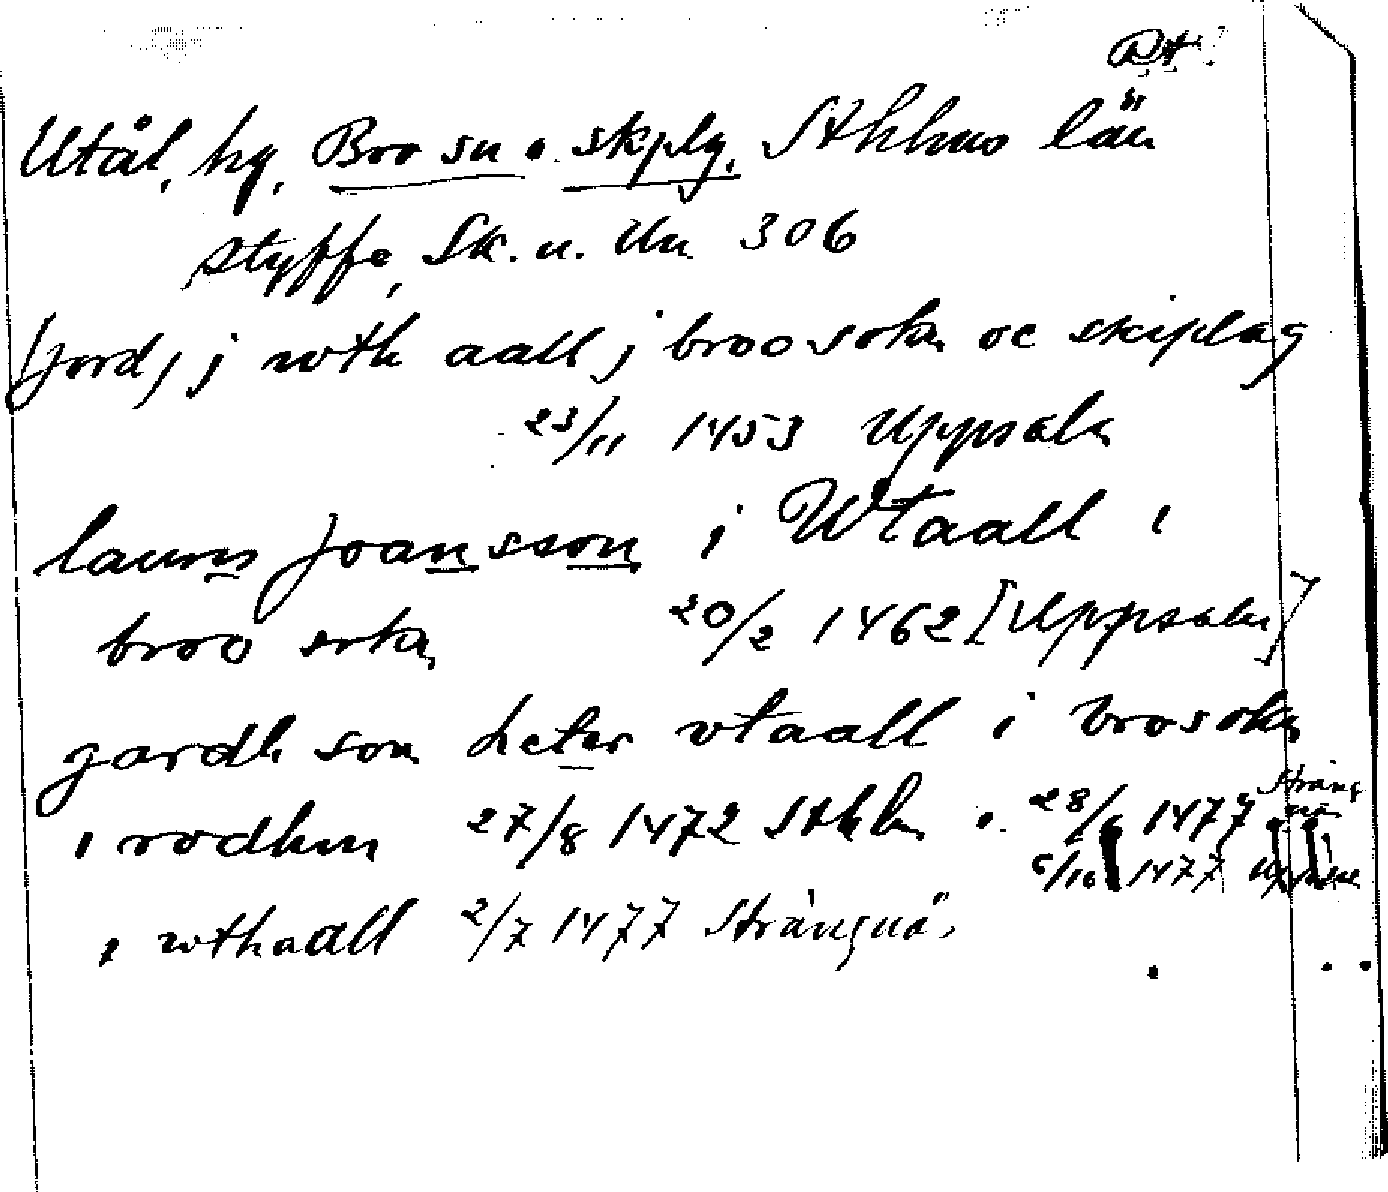 RA
Utål, hg, Bro sn o. skplg, Sthlms län
Styffe, Sk. u. Un 306
(jord) j wth aall j broo sokn oc skiplag
23/11 1453 Uppsala
laurns Joansson i Wtaall i
broo sokn 20/2 1462 [Uppsala]
gardh som heter vtaall i bro sokn
i rodhin 27/8 1472 Sthlm. 28/6 1477 Sträng
6/10 1477
i wthaall 2/7 1477 Strängnäs